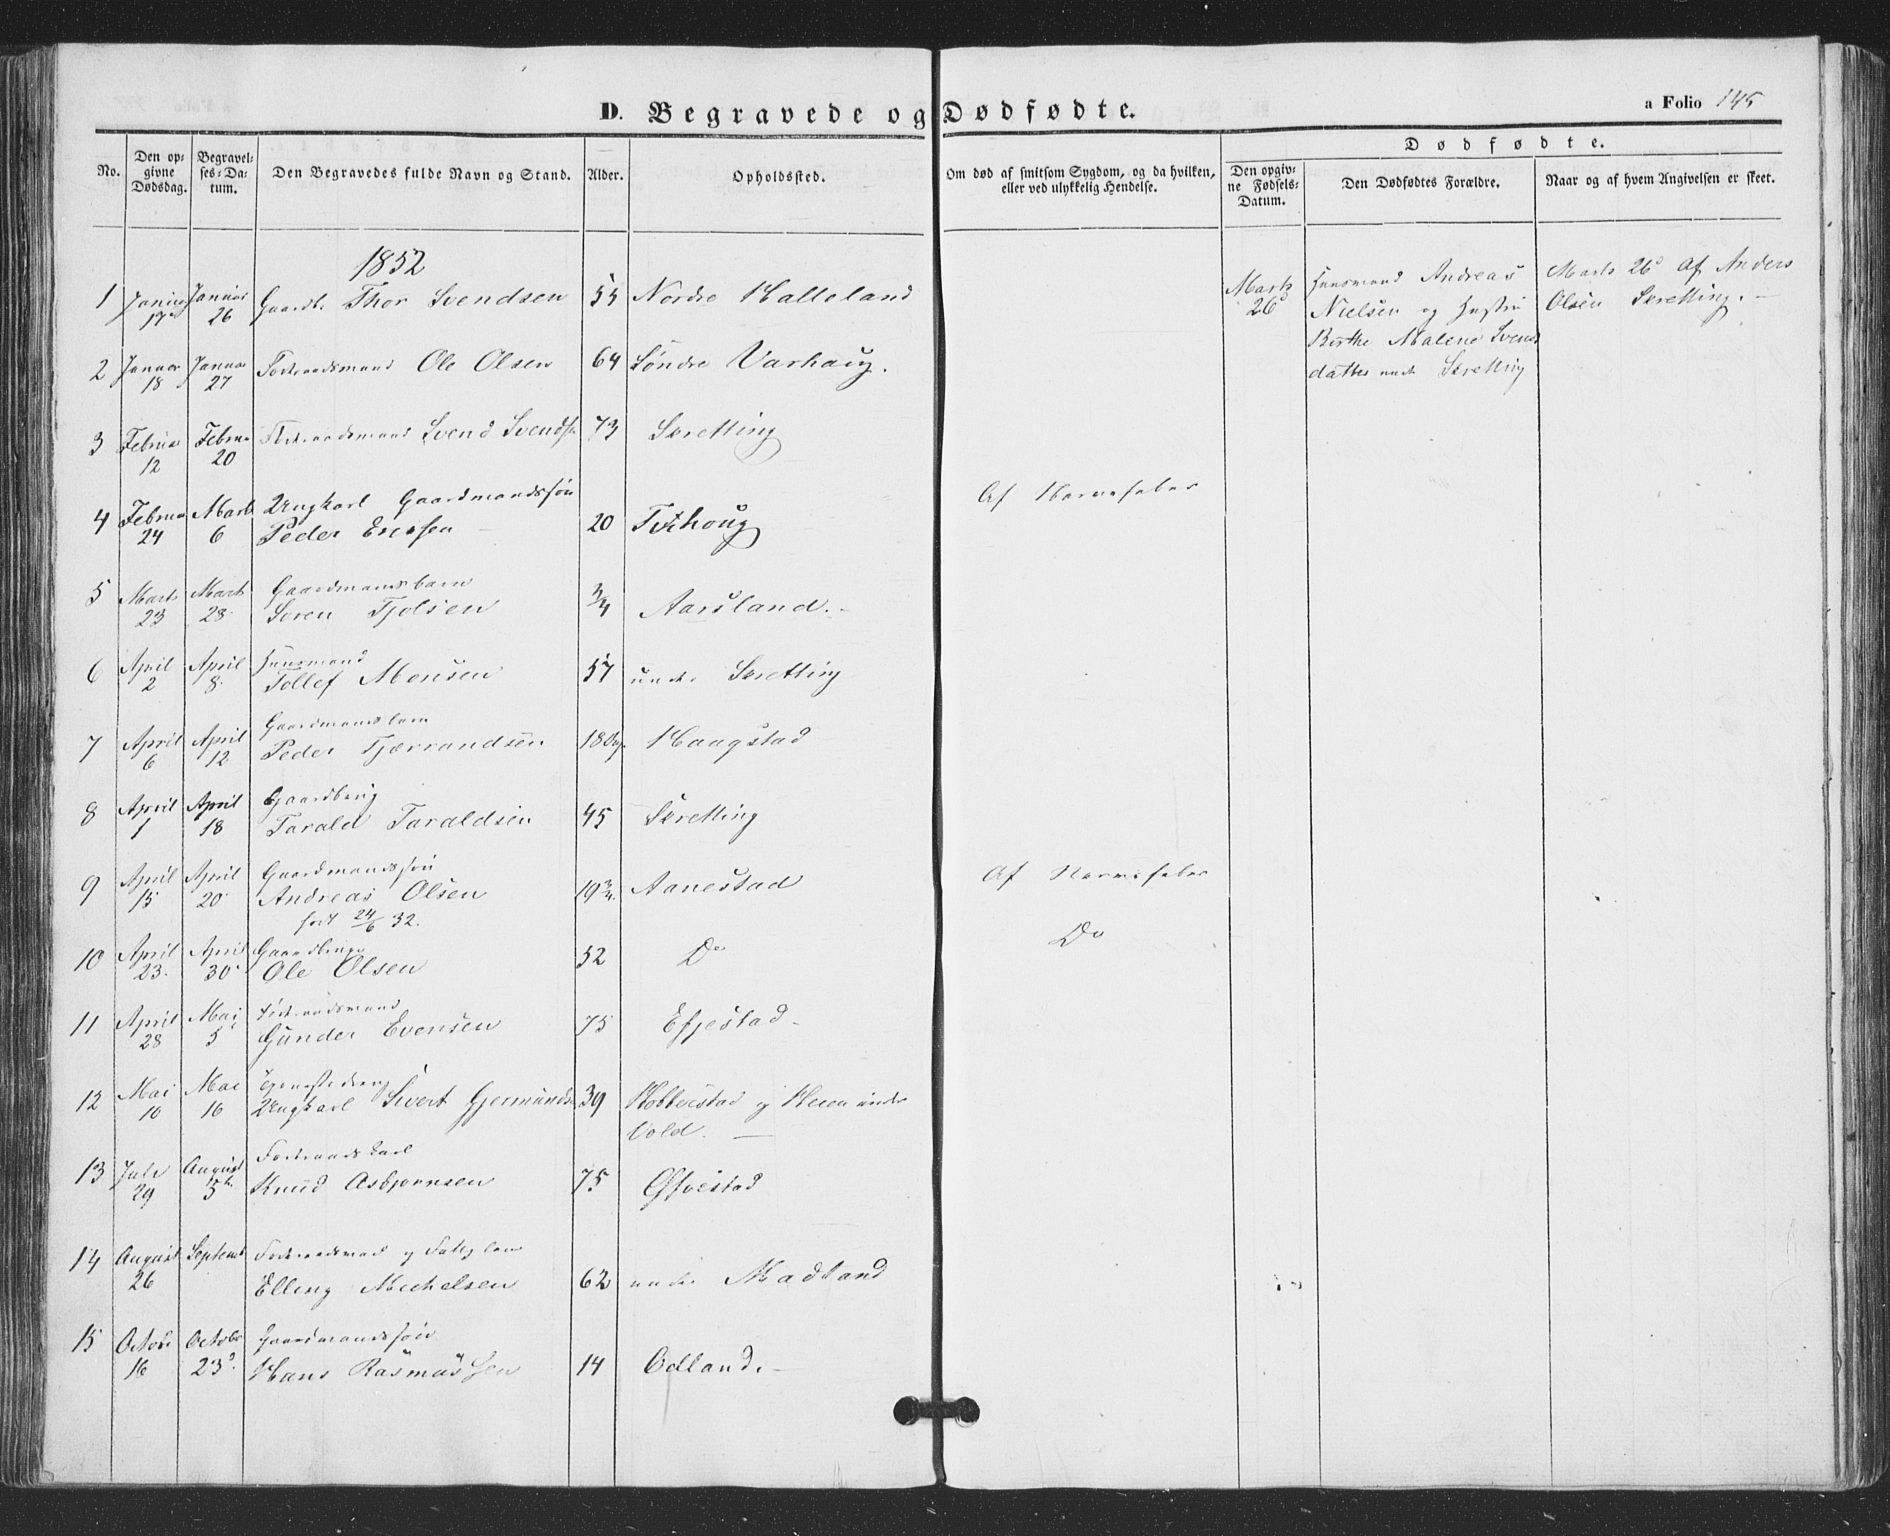 D. Begravede og Dødfødte.
a Folio 145
No.
Den opgivne Dødsdag.
Begravelses-Datum.
Den Begravedes fulde Navn og Stand.
Alder.
Opholdssted.
Om død af smitsom Sygdom, og da hvilken, eller ved ulykkelig Hendelse.
Dødfødte.
Den opgivne Fødsels-Datum.
Den Dødfødtes Forældre.
Naar og af hvem Angivelsen er skeet.
1852
1 17 Januar 26 Gaardbr Thor Svendsen 55 Nordre Halleland
2 Januar 18 Januar 27 Føderaadsmand Ole Olsen 64 Søndre Varhaug.
3 Februar 12 Februar 20 Føderaadsmand Svend Svends. 73 Skretting
4 Februar 24 Marts 6 Ungkarl Gaardmandssøn
Peder Ericsen 20 Tvihoug Af Nervefeber
5 Marts 23 Marts 28 Gaardmandsbarn
Soren Tjolsen 3/4 Aarsland.
6 April 2 April 8 Huusmand
Tollef Monsen 57 under Skretting
7 April 6 April 12 Gaardmandsbarn
Peder Tjerrandsen 18 Dg. Haugstad
8 April 1 April 18 Gaardbrug
Tarald Taraldsen 45 Skretting
9 April 15 April 20 Gaardmandssøn
Andreas Olsen 19 Aanestad Af Nervefeber
født 24/6 32.
10 April 23 April 30 Gaardbruger
Ole Olsen 52 Do Do
11 April 28 Mai 5 Føderaadsmand
Gunder Evensen 75 Efjestad
12 Mai 10 Mai 16 Tjenestedreng
Ungkarl Sivert Gjermunds. 39 Hobberstad og under
Vold.
13 Juli 29 August 5 Føderaadskarl
Knud Asbjørnsen 75
14 August 26 Septembr Føderaadsmand og Fattiglem
Elling Michelsen 62 under Madland
15 October 16 October 23 Gaardmandssøn
Hans Rasmussen 14 Odland.
Marts 26
Huusmand Andreas
Nielsen og Hustru
Berthe Malene Svends
datter under Skretting
Marts 26 af Anders
Olsen Skretting.